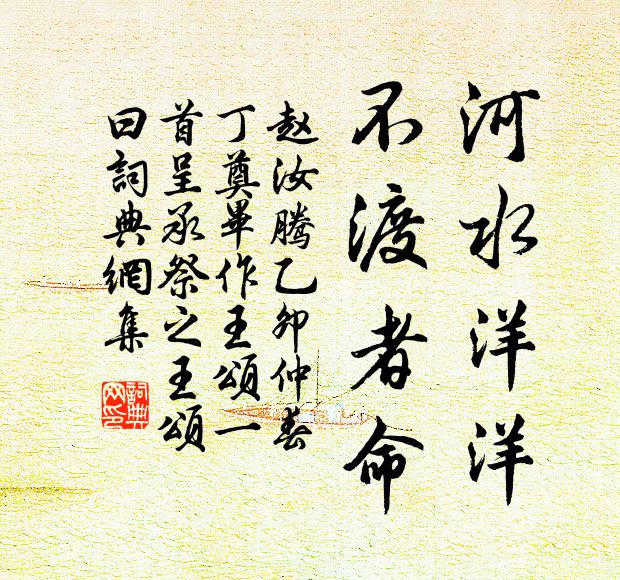 河水洋洋
不渡者命
赵汝腾乙卯仲春
丁奠畢作王頌一
首呈承祭之王頌
曰詞典網集
詞典
网印